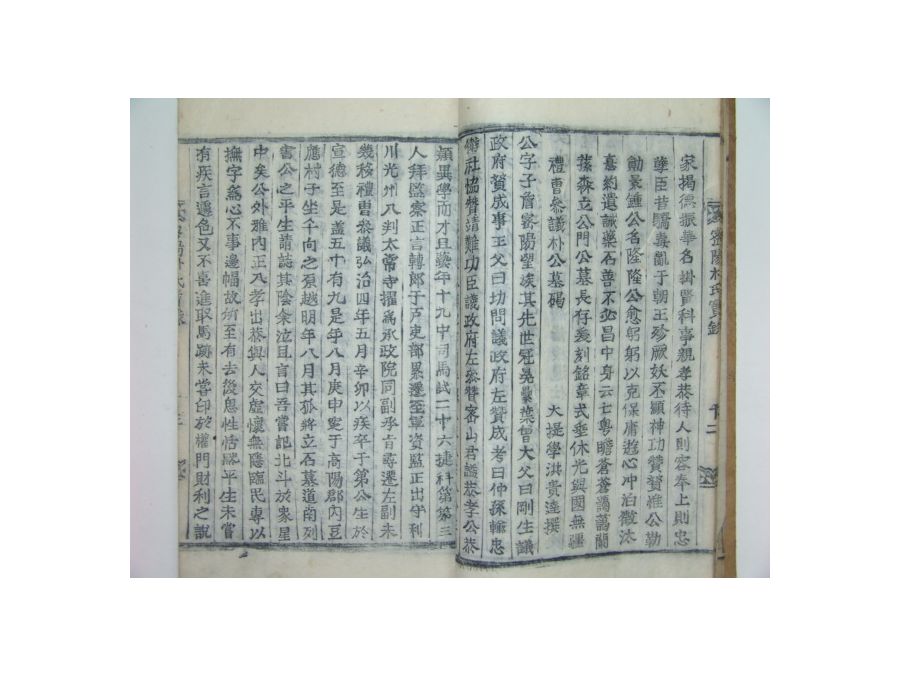 家揭德振華名掛賢科事親孝恭待人則容奉上則忠
孼臣昔驕毒亂于朝王珍厥妖丕顯神功贊贊惟公勒
勳景鍾公名隆隆公愈躬躬以克保庸遊心冲泊散沐
耆約遺誠藥石善不必昌中身云亡粤瞻蒼蒼藹藹蘭
蓀森立公門公墓長存爰刻銘章式垂休光與國無疆
禮曹參議朴公墓碣 大提學洪貴達撰
公字子 密陽望族其先世冠冕 葉曾大父曰剛生議
政府贊成事王父曰功問議政府左贊成考曰仲孫輸忠
社協贊靖難功臣議政府左參贊密山君諡恭孝公恭
穎異學而才且 年十九中司馬試二十六捷科第第三
人拜監察正言轉郎子戶吏部累遷至軍資監正出守利
川光州入判太常寺擢爲承政院同副承旨尋遷左副未
幾移禮曹參議弘治四年五月辛卯以疾卒于第公生於
宣德至是盖五十有九是年八月庚申窆于高陽郡內豆
應村子坐午向之原越明年八月其孤將立石墓道南列
書公之平生請誌其陰余泣且言曰吾嘗記北斗於衆星
中矣公外雅內正入孝出恭與人交虛懷無隱臨民專以
撫字爲心不事邊幅故所至有去後思性恬 平生未嘗
有疾言遽色又不喜進取馬跡未嘗印於權門財利之說
密陽朴氏實錄
十二